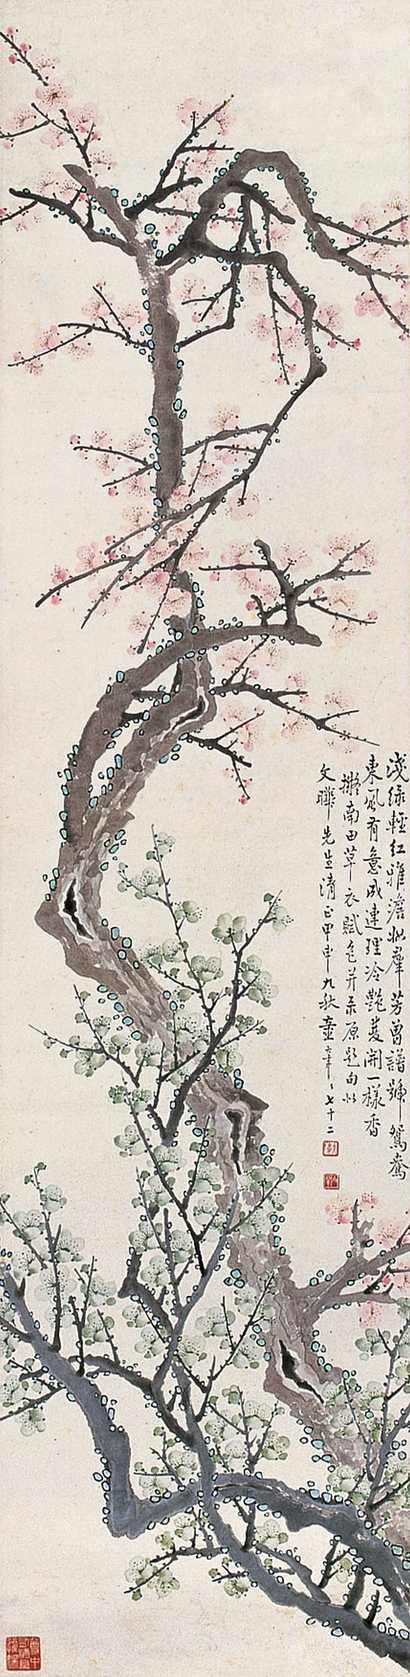 淺綠輕紅雅澹妝羣芳曾譜號鴛鴦
東風有意成連理冷艷雙開一樣香
擬南田草衣賦色并录原题句似
文聯先生清正甲申九秋壶年七十二